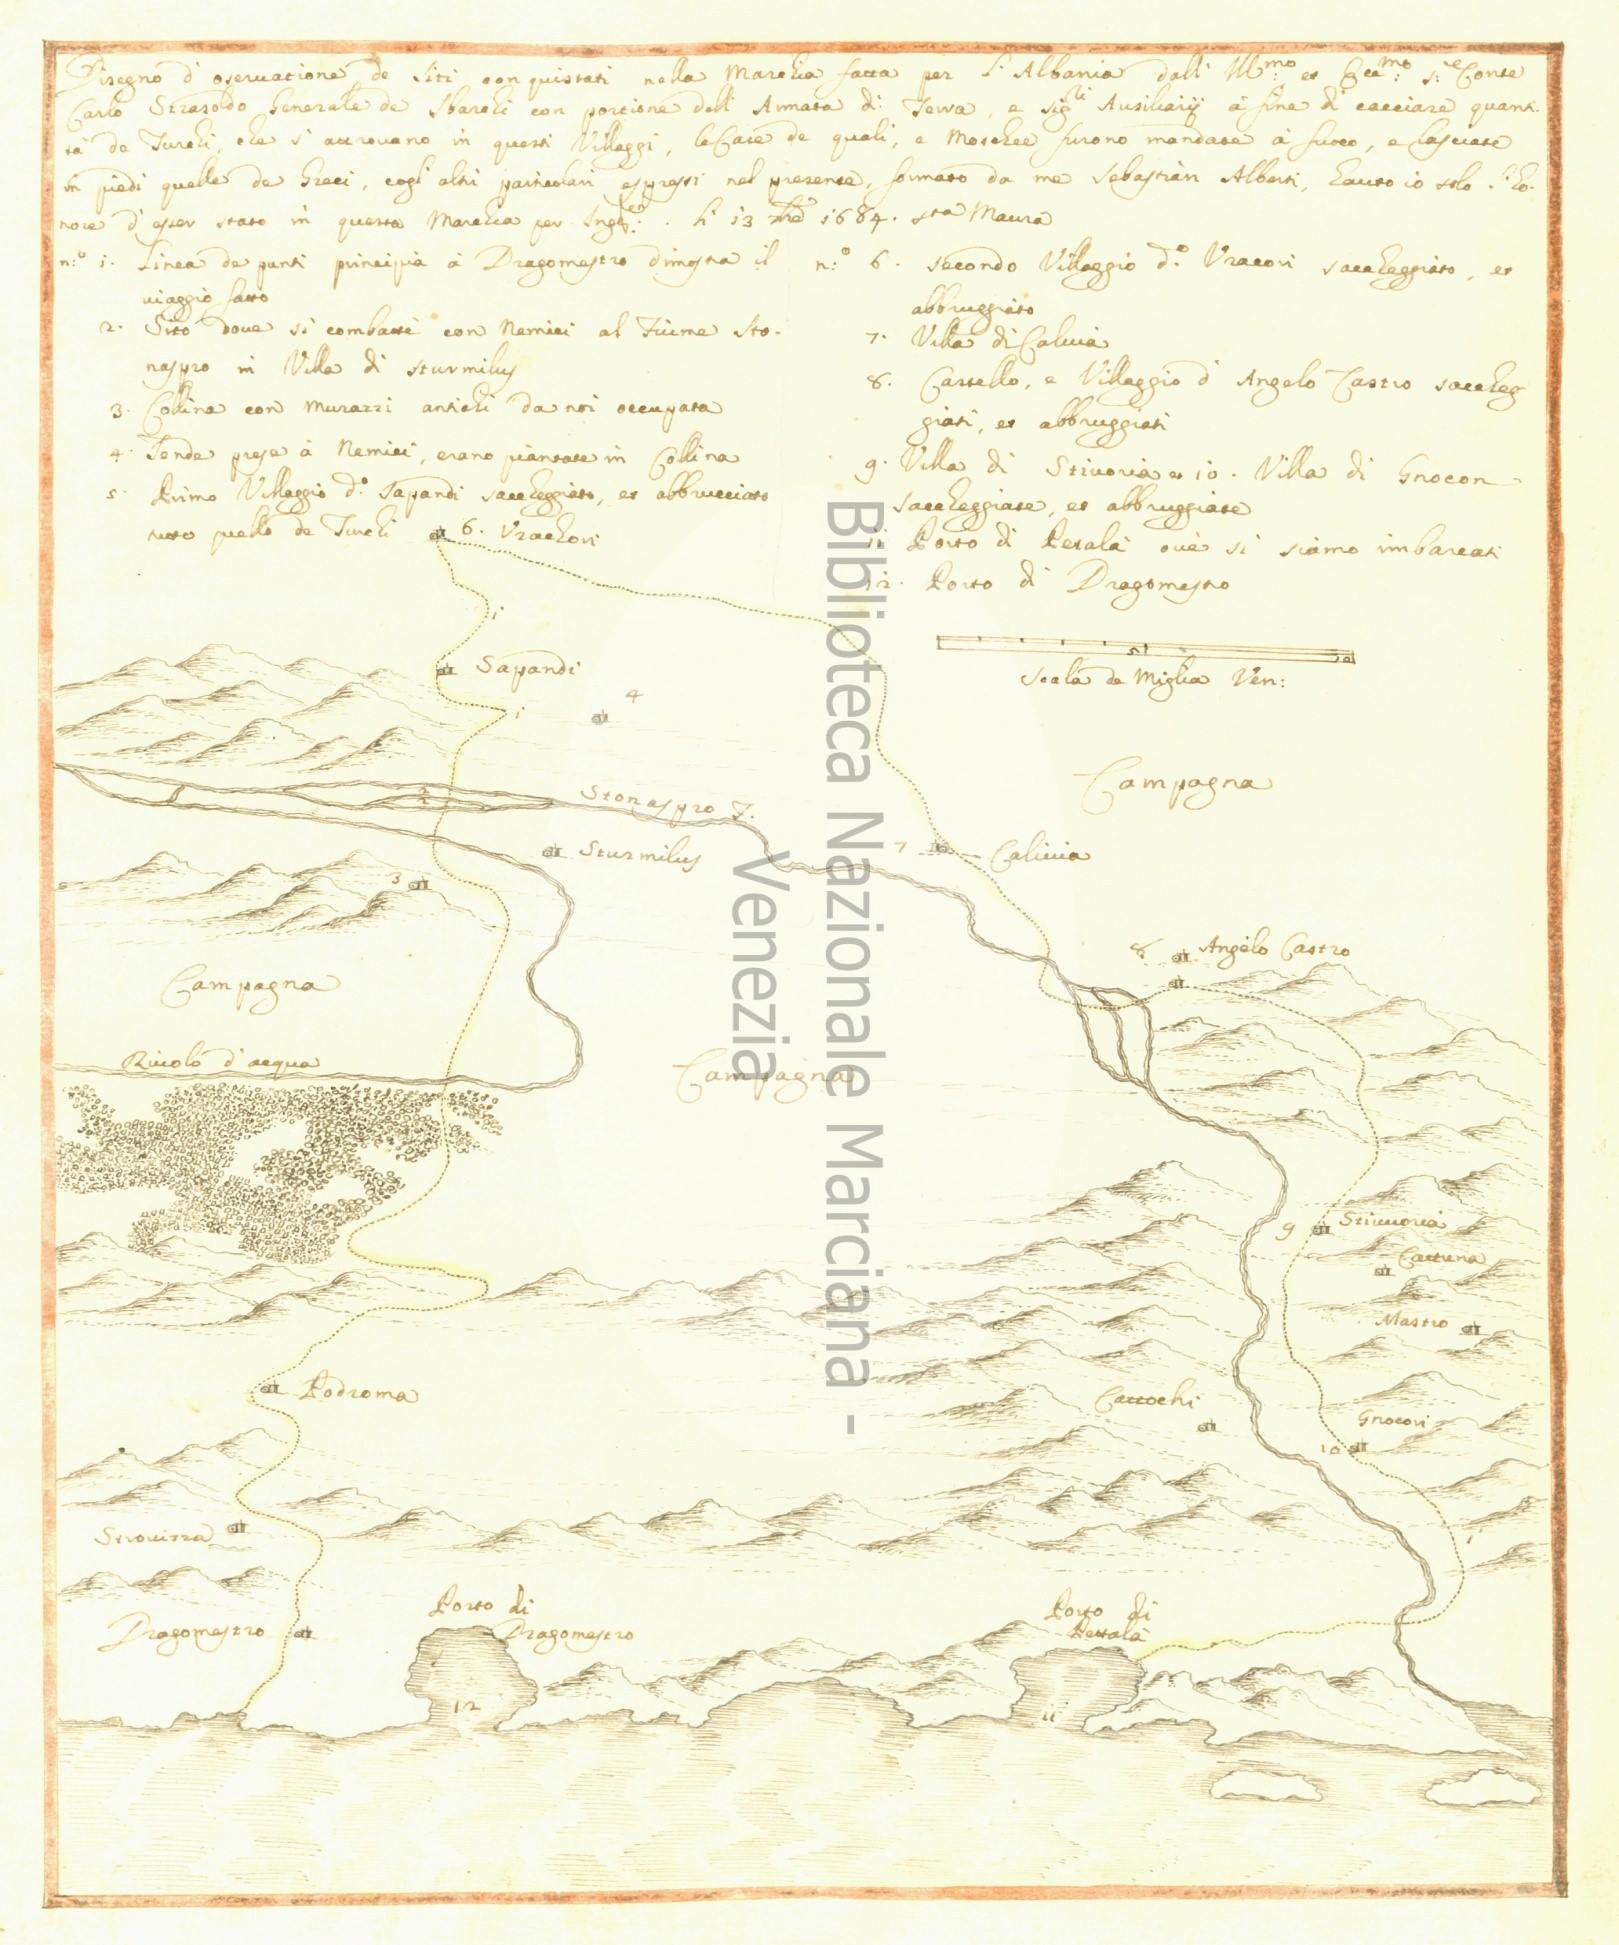 Disegno d' oseruatione de Siti conquistati nella Marchia fatta per l' Albania dall' Ill:mo et Ecc:mo S:r Conte
Carlo Strasoldo Generale de Sbarchi con portione dell' Armata di Terra, e Sig:li Ausiliarij à fine di cacciare quanti-
tà de Turchi, che s' attrouano in questi Villaggi, le Case de quali, e Moschee furono mandate à fuoco, e lasciate
in piedi quelle de Greci, cogl' altri particolari espressi nel presente, formato da me Sebastian Alberti, hauuto io solo l' ho-
nore d' esser stato in questa Marchia per Ing:er. li 13 1684. S:ta Maura
n:o 1. Linea de punti principia à Dragomestro dimostra il
uiaggio fatto
2. Sito doue si combatté con Nemici al Fiume Sto-
naspro in Villa di Sturmilus
3. Collina con murazzi antichi da noi occupata
4. Tende prese à Nemici, erano piantate in Collina
5. Primo Villaggio d:o Sapandi saccheggiato, et abbrucciato
tutto quello de Turchi
n:o 6. Secondo Villaggio d:o Vracori saccheggiato, et
abbruggiato
7. Villa di Caliuia
8. Castello, e Villaggio d' Angelo Castro saccheg
giati, et abbruggiati
9. Villa di Stiuoria et 10. Villa di Gnocori
saccheggiate, et abbruggiate
11. Porto di Petalà oué si siamo imbarcati
12. Porto di Dragomestro
6. Vrachori
1
Sapandi
Scala de Miglia Ven:
5
10
4
1
Campagna
Stonaspro F.
2
2
Sturmilus
7
Caliuia
3
8
Angelo Castro
Campagna
Riuolo d' acqua
Campagna
9
Stiuoria
Cattuna
Mastro
Podroma
Cattochi
Gnocori
10
Strouizza
1
Porto di
Dragomestro
Porto di
Pettalà
Dragomestro
12
11
Biblioteca Nazionale Marciana -
Venezia